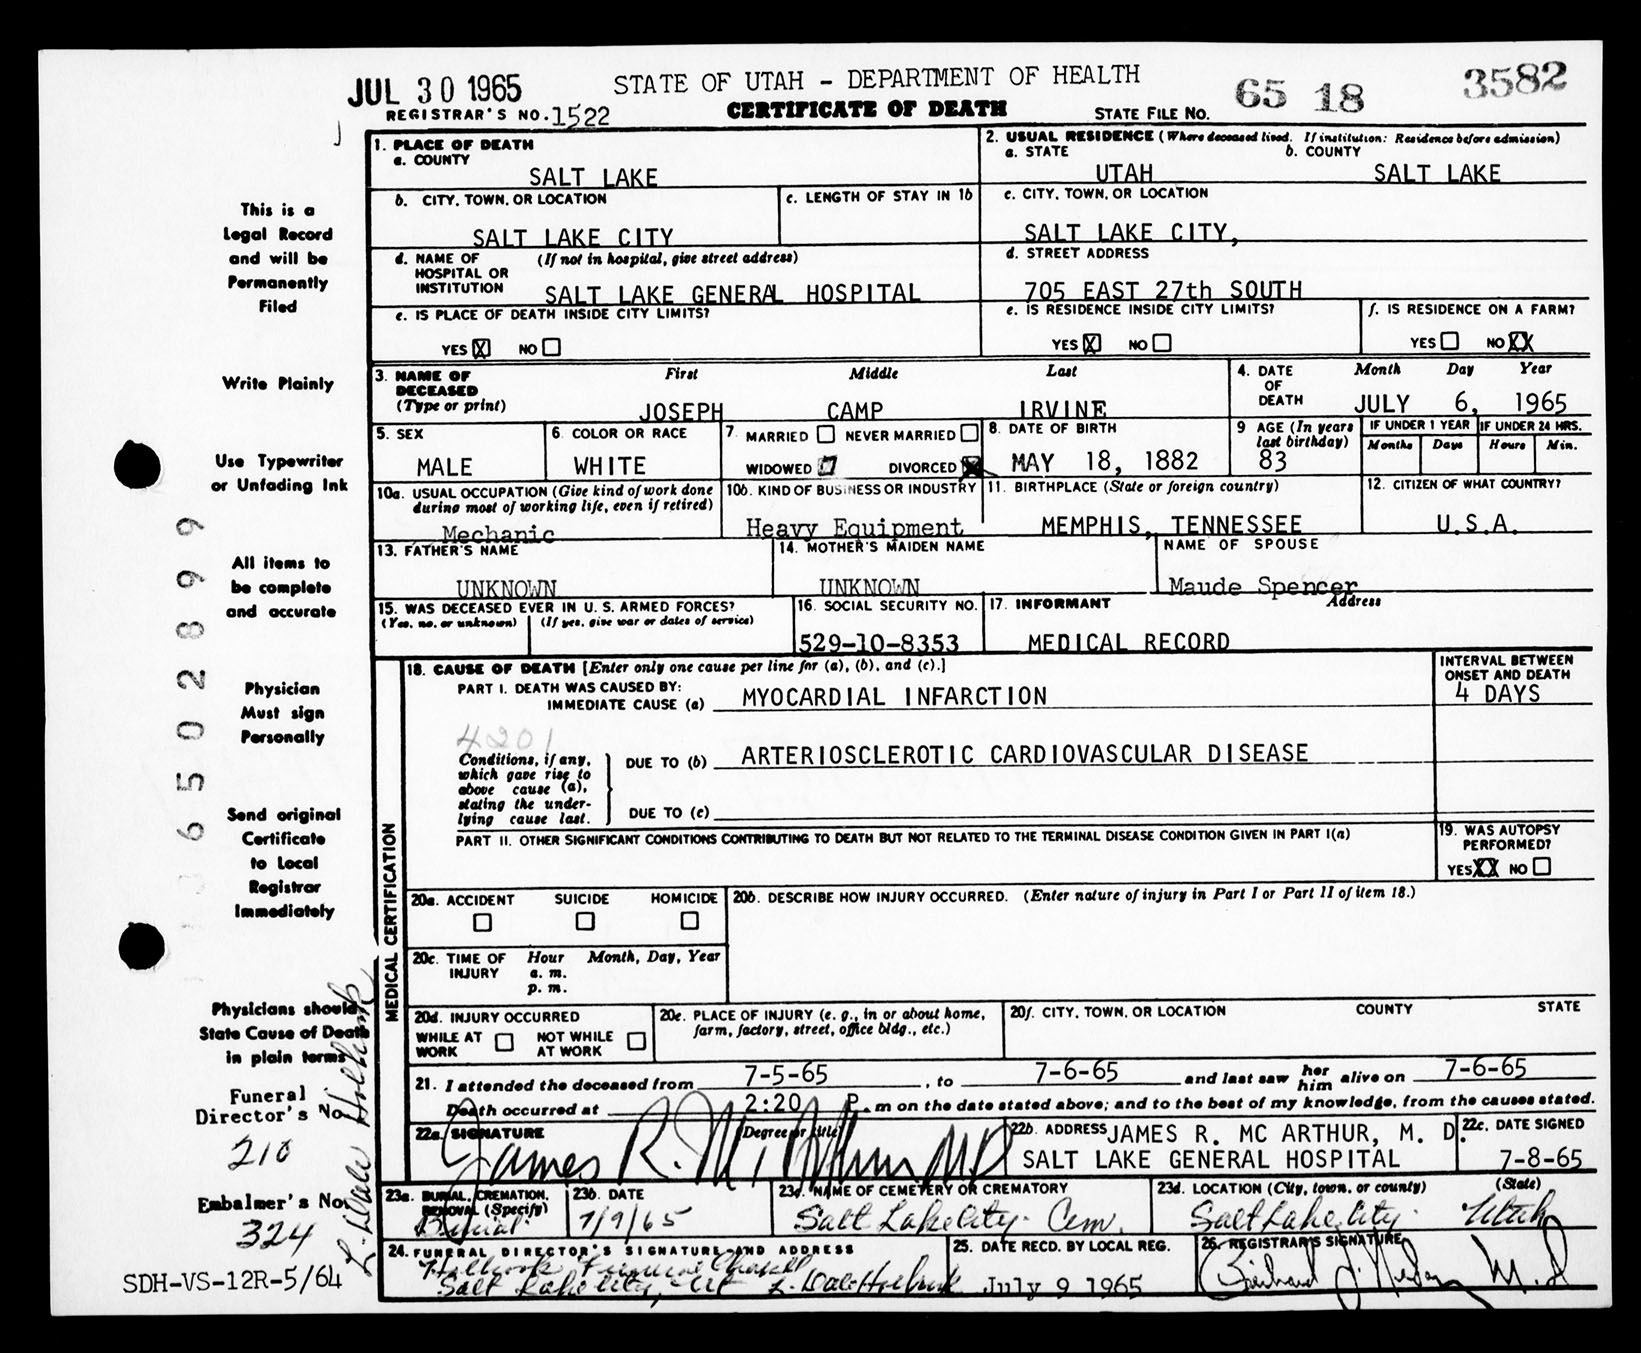 JUL 30 1965
STATE OF UTAH – DEPARTMENT OF HEALTH
65 18 3582
REGISTRAR'S NO. 1522
CERTIFICATE OF DEATH
STATE FILE NO.
This is a
Legal Record
and will be
Permanently
Filed
Write Plainly
Use Typewriter
or Unfading Ink
All items to
be complete
and accurate
Physician
Must sign
Personally
Send original
Certificate
to Local
Registrar
Immediately
Physicians should
State Cause of Death
in plain terms
Funeral
Director's No
210
Embalmer's No
324
L. Dale Holbrook
SDH-VS-12R-5/64
36502899
1. PLACE OF DEATH
a. COUNTY
SALT LAKE
2. USUAL RESIDENCE (Where deceased lived. If institution: Residence before admission)
a. STATE b. COUNTY
UTAH SALT LAKE
b. CITY, TOWN, OR LOCATION
SALT LAKE CITY
c. LENGTH OF STAY IN 1b
c. CITY, TOWN, OR LOCATION
SALT LAKE CITY,
d. NAME OF (If not in hospital, give street address)
HOSPITAL OR
INSTITUTION SALT LAKE GENERAL HOSPITAL
d. STREET ADDRESS
705 EAST 27th SOUTH
e. IS PLACE OF DEATH INSIDE CITY LIMITS?
YES X NO
e. IS RESIDENCE INSIDE CITY LIMITS?
YES X NO
f. IS RESIDENCE ON A FARM?
YES NO XX
3. NAME OF First Middle Last
DECEASED
(Type or print) JOSEPH CAMP IRVINE
4. DATE Month Day Year
OF
DEATH JULY 6, 1965
5. SEX
MALE
6. COLOR OR RACE
WHITE
7. MARRIED NEVER MARRIED
WIDOWED DIVORCED X
8. DATE OF BIRTH
MAY 18, 1882
9 AGE (In years
last birthday)
83
IF UNDER 1 YEAR IF UNDER 24 HRS.
Months Days Hours Min.
10a. USUAL OCCUPATION (Give kind of work done
during most of working life, even if retired)
Mechanic
10b. KIND OF BUSINESS OR INDUSTRY
Heavy Equipment
11. BIRTHPLACE (State or foreign country)
MEMPHIS, TENNESSEE
12. CITIZEN OF WHAT COUNTRY?
U.S.A.
13. FATHER'S NAME
UNKNOWN
14. MOTHER'S MAIDEN NAME
UNKNOWN
NAME OF SPOUSE
Maude Spencer
15. WAS DECEASED EVER IN U. S. ARMED FORCES?
(Yes, no, or unknown) (If yes, give war or dates of service)
16. SOCIAL SECURITY NO.
529-10-8353
17. INFORMANT Address
MEDICAL RECORD
MEDICAL CERTIFICATION
18. CAUSE OF DEATH [Enter only one cause per line for (a), (b), and (c).]
PART I. DEATH WAS CAUSED BY:
IMMEDIATE CAUSE (a) MYOCARDIAL INFARCTION
INTERVAL BETWEEN
ONSET AND DEATH
4 DAYS
4201
Conditions, if any,
which gave rise to
above cause (a),
stating the under-
lying cause last.
DUE TO (b) ARTERIOSCLEROTIC CARDIOVASCULAR DISEASE
DUE TO (c)
PART II. OTHER SIGNIFICANT CONDITIONS CONTRIBUTING TO DEATH BUT NOT RELATED TO THE TERMINAL DISEASE CONDITION GIVEN IN PART I(a)
19. WAS AUTOPSY
PERFORMED?
YES XX NO
20a. ACCIDENT SUICIDE HOMICIDE
20b. DESCRIBE HOW INJURY OCCURRED. (Enter nature of injury in Part I or Part II of item 18.)
20c. TIME OF Hour Month, Day, Year
INJURY a. m.
p. m.
20d. INJURY OCCURRED
WHILE AT NOT WHILE
WORK AT WORK
20e. PLACE OF INJURY (e. g., in or about home,
farm, factory, street, office bldg., etc.)
20f. CITY, TOWN, OR LOCATION COUNTY STATE
21. I attended the deceased from 7-5-65, to 7-6-65 and last saw her him alive on 7-6-65
Death occurred at 2:20 P. m on the date stated above; and to the best of my knowledge, from the causes stated.
22a. SIGNATURE (Degree or title)
James R. McArthur MD
22b. ADDRESS JAMES R. MC ARTHUR, M. D.
SALT LAKE GENERAL HOSPITAL
22c. DATE SIGNED
7-8-65
23a. BURIAL, CREMATION,
REMOVAL (Specify)
Burial
23b. DATE
7/9/65
23c. NAME OF CEMETERY OR CREMATORY
Salt Lake City Cem.
23d. LOCATION (City, town, or county) (State)
Salt Lake City Utah
24. FUNERAL DIRECTOR'S SIGNATURE AND ADDRESS
Holbrook Funeral Chapel
Salt Lake City, Ut L. Dale Holbrook
25. DATE RECD. BY LOCAL REG.
July 9 1965
26. REGISTRAR'S SIGNATURE
M.D